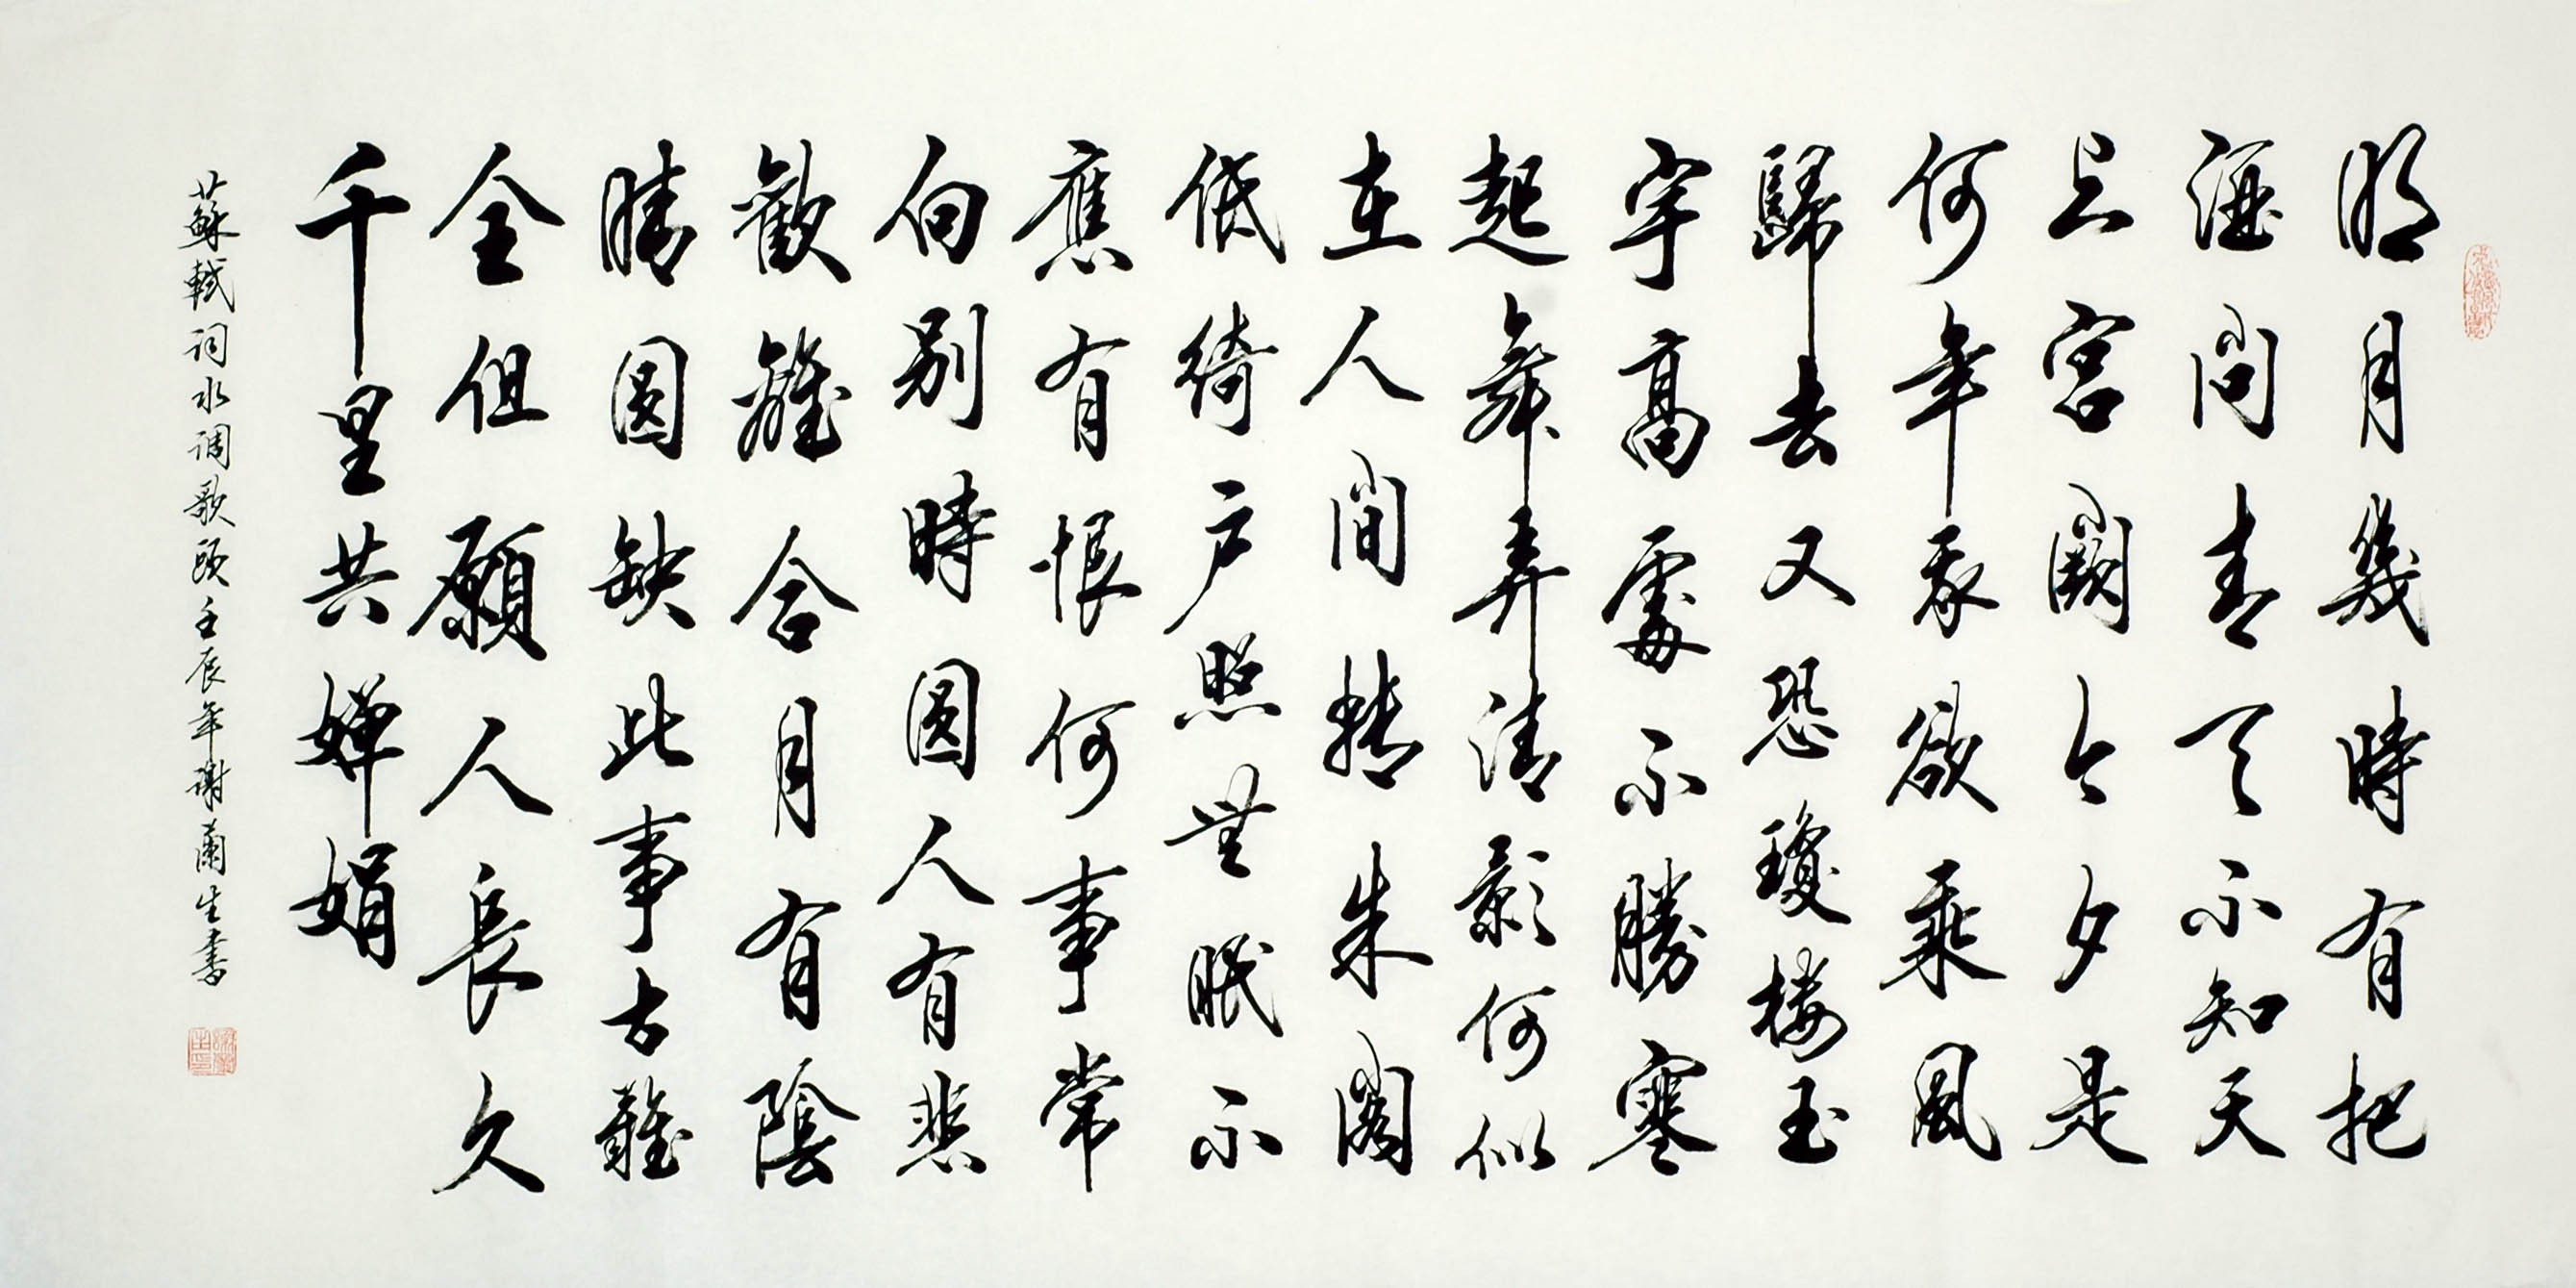 明月幾時有把
酒問青天不知天
上宮闕今夕是
何年我欲乘風
歸去又恐瓊樓玉
宇高處不勝寒
起舞弄清影何似
在人間轉朱閣
低綺户照無眠不
應有恨何事常
向别時圓人有悲
歡離合月有陰
晴圓缺此事古難
全但願人長久
千里共嬋娟
蘇軾词水调歌頭壬辰年谢蘭生書